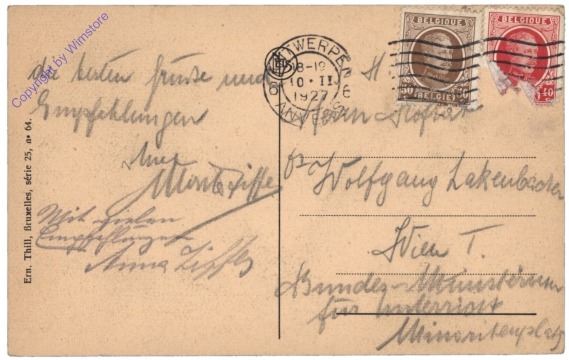 Copyright by Wimstore
die besten Grüsse und
Empfehlungen
Mit vielen
Empfehlungen
Anna
Ern. Thill, Bruxelles, série 25, nº 64.
ANTWERPEN 6
18-19
10·II
1927
ANVERS 6
BELGIQUE
50
BELGIË
BELGIQUE
40
Herrn Hofrat
Dr Wolfgang Lakenbacher
Wien I.
Bundes-Ministerium
für Unterricht
Minoritenplatz